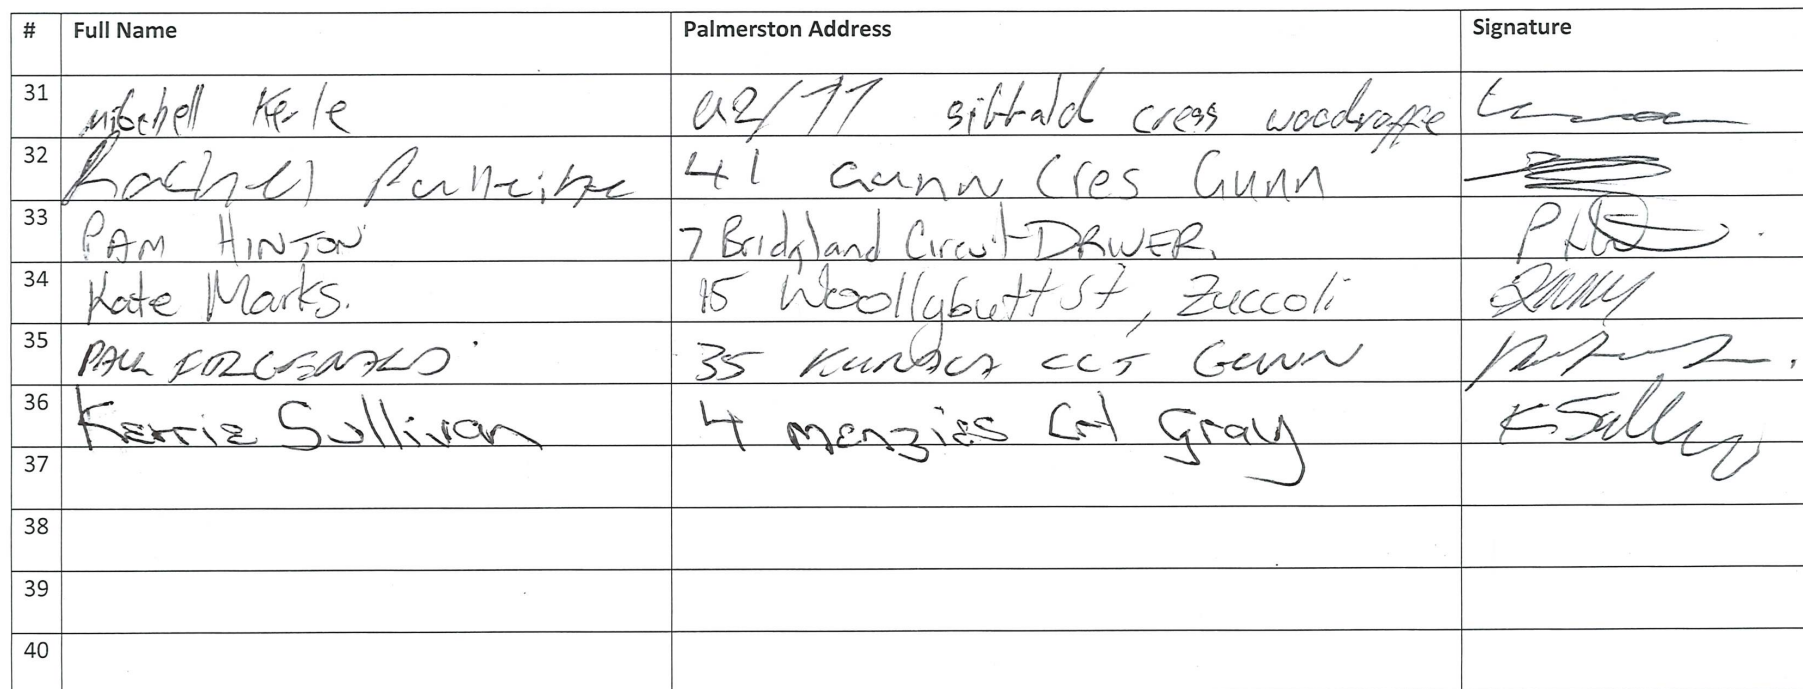 # Full Name Palmerston Address Signature
31 mitchell Kerle U2/77 sibbald cress woodroffe
32 Rachel 41 Gunn Cres Gunn
33 PAM HINTON 7 Bridgland Circuit DRIVER.
34 Kate Marks. 15 Woollybutt St, Zuccoli
35 PAUL FITZGERALD 35 CCT GUNN
36 Kerrie Sullivan 4 Menzies Crt Gray K Sull
37
38
39
40